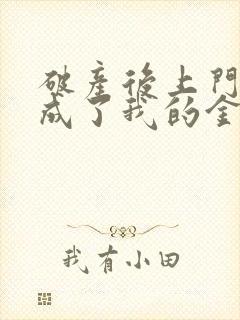 破産後上門
成了我的金
我有小田